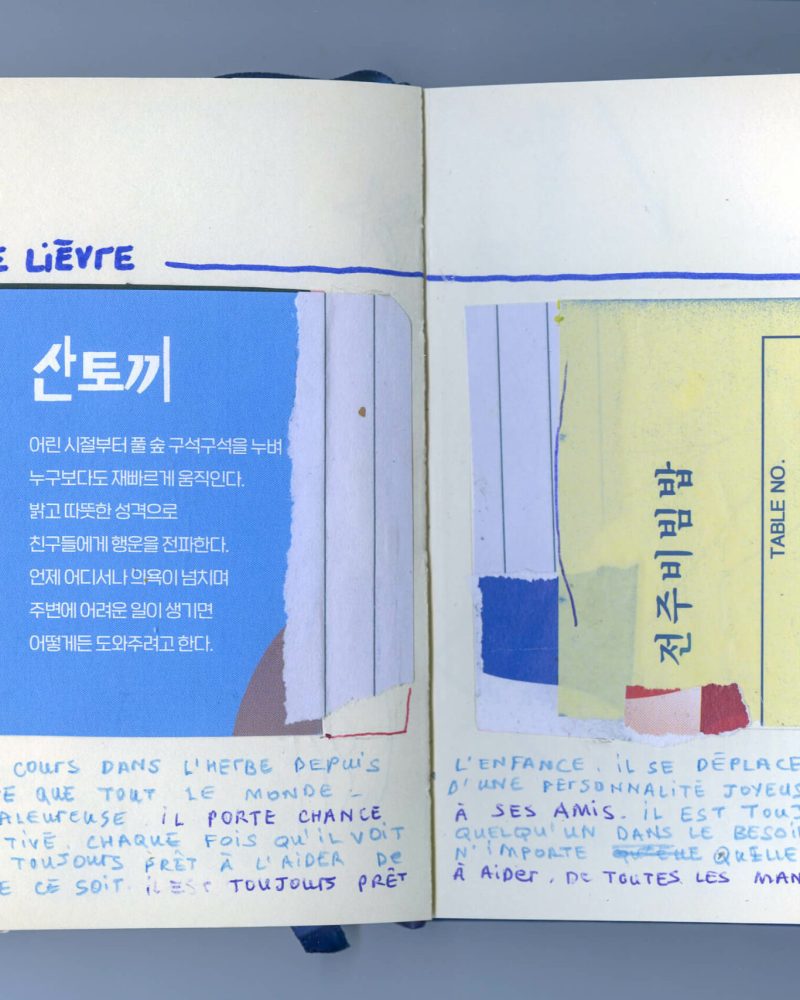 E LIĒVrE
산토끼
어린 시절부터 풀 숲 구석구석을 누벼
누구보다도 재빠르게 움직인다.
밝고 따뜻한 성격으로
친구들에게 행운을 전파한다.
언제 어디서나 의욕이 넘치며
주변에 어려운 일이 생기면
어떻게든 도와주려고 한다.
COURS DANS L'HERBE DEPUIS
E QUE TOUT LE MONDE –
ALEUREUSE. IL PORTE CHANCE
TIVE. CHAQUE FOIS QU'IL VOIT
TOUJOURS PRÊT À L'AIDER DE
E CE SOIT. IL EST TOUJOURS PRÊT
전주비빔밥
TABLE NO.
L'ENFANCE. IL SE DÉPLACE
D'UNE PERSONNALITÉ JOYEUS
À SES AMIS. IL EST TOUJ
QUELQU'UN DANS LE BESOI
N'IMPORTE QUELLE
À AIDER, DE TOUTES LES MAN